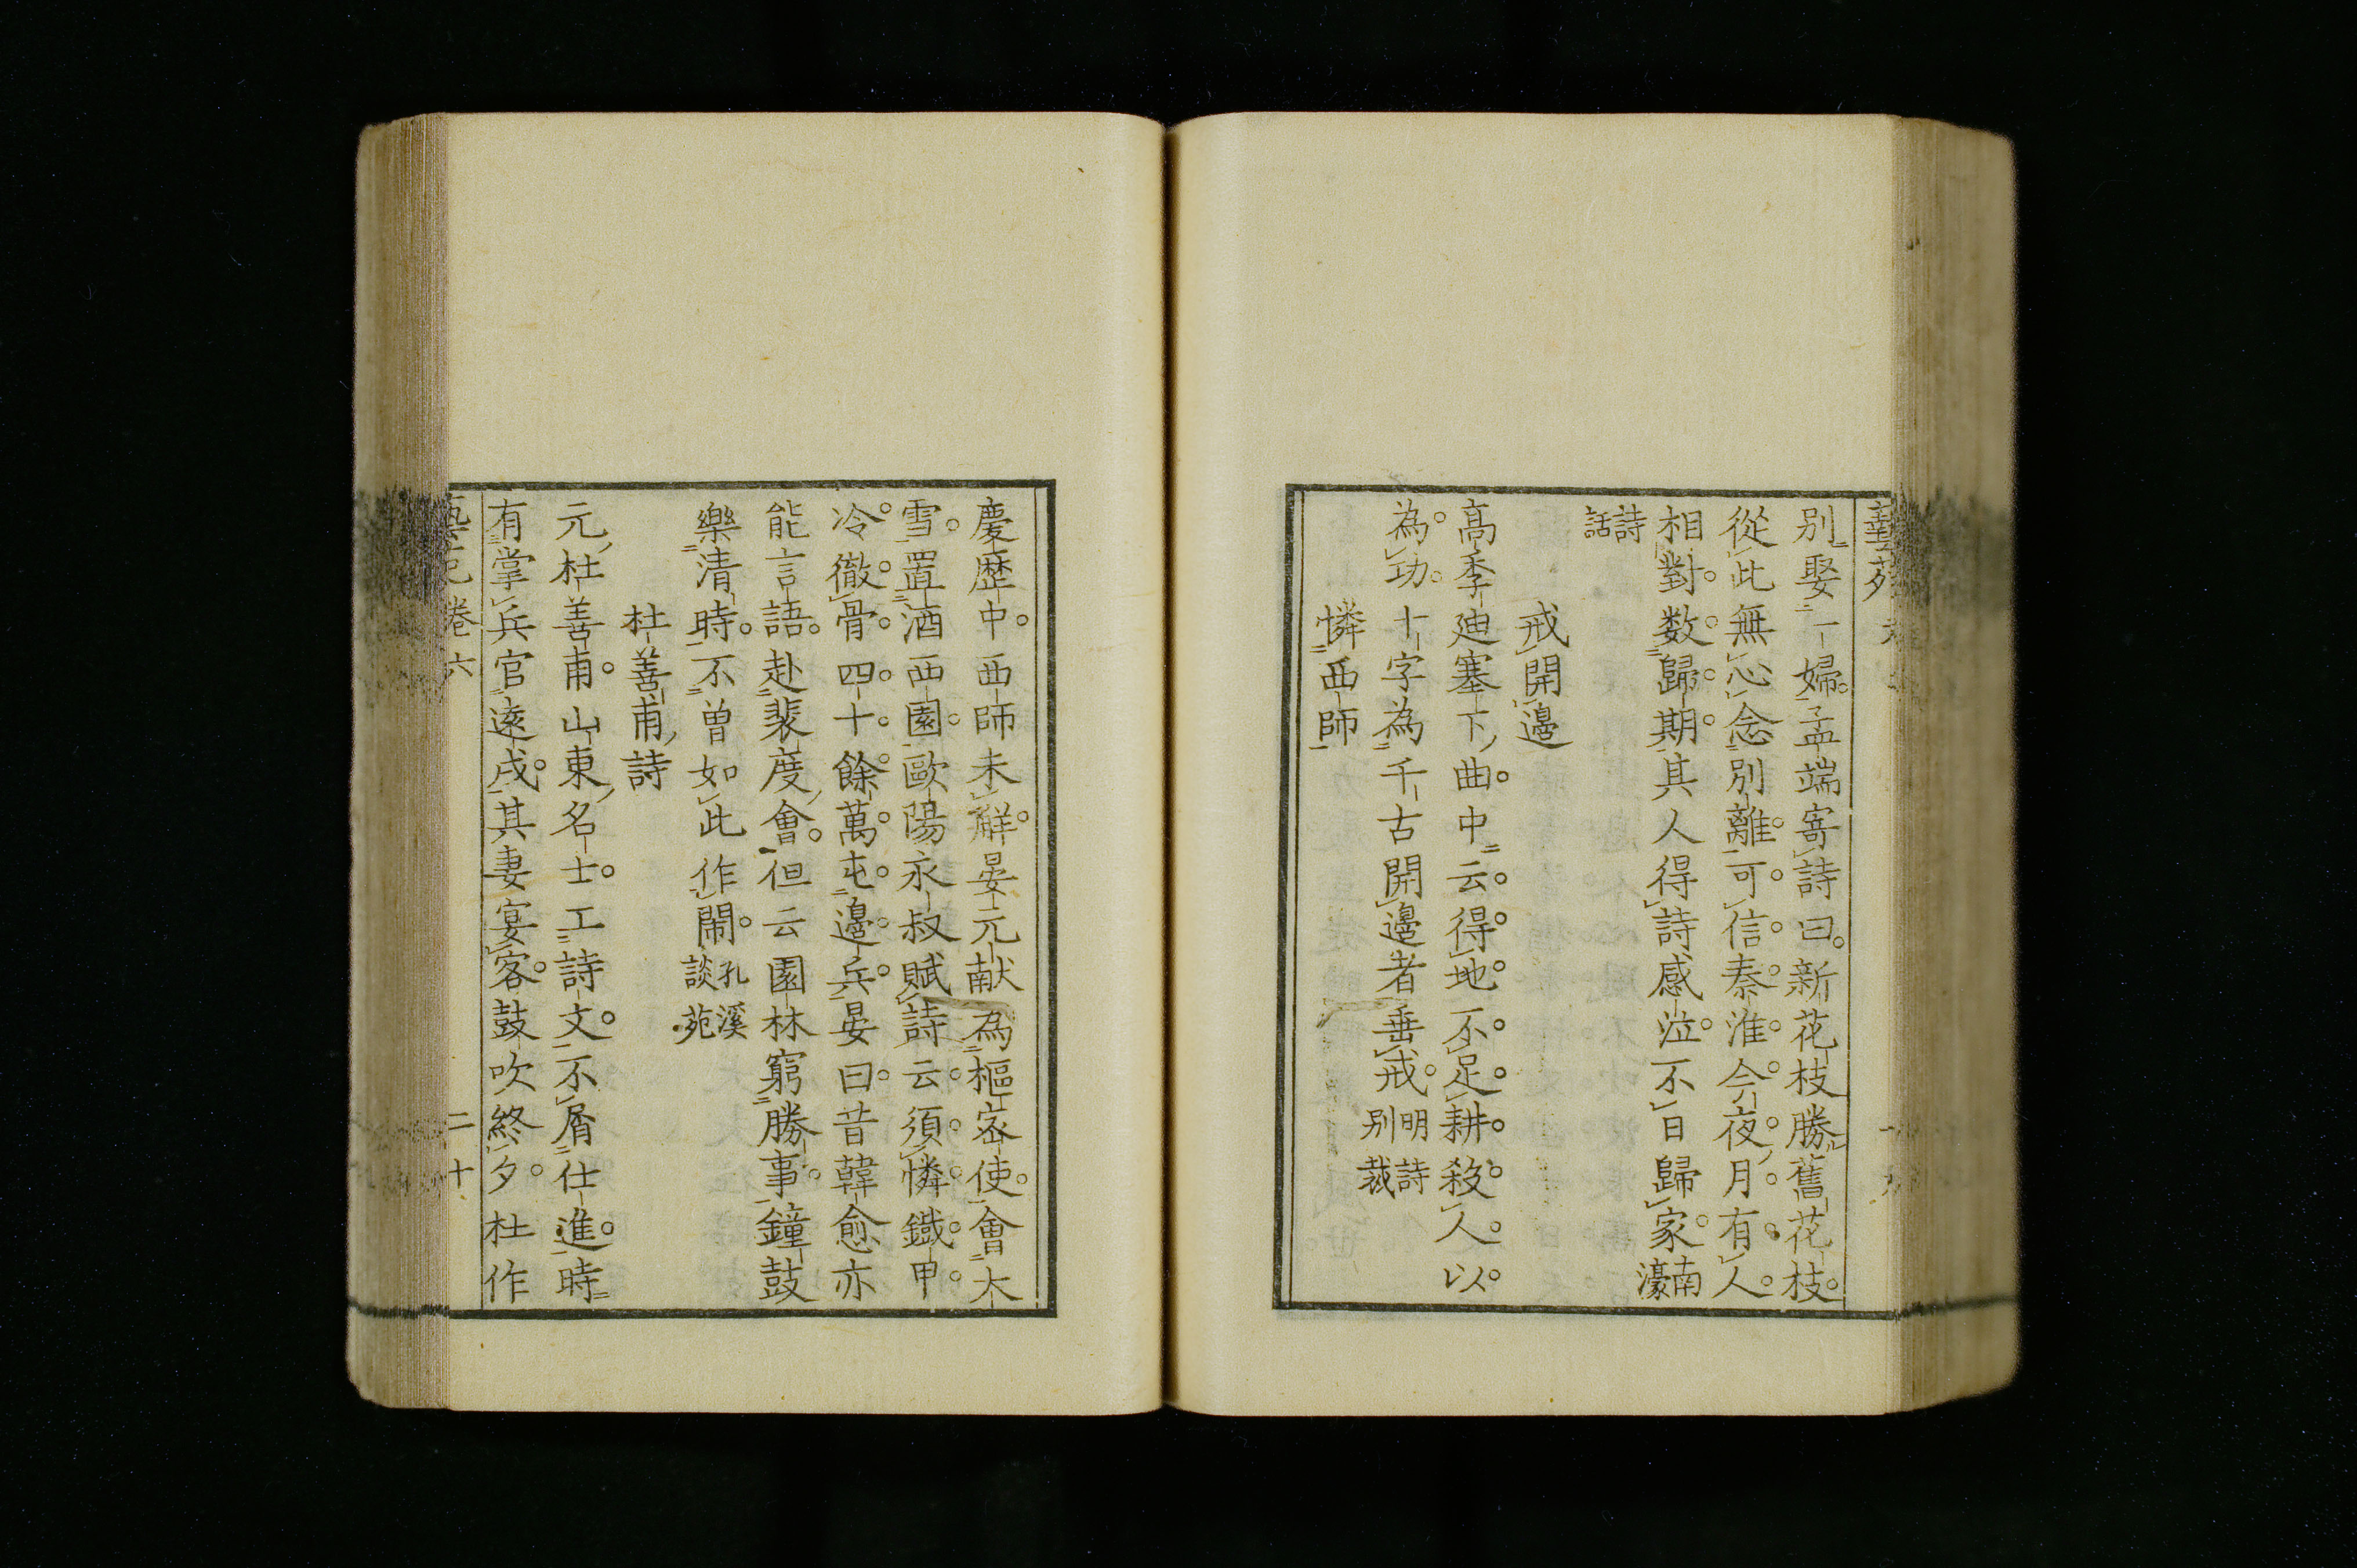 別娶一婦孟端寄詩曰新花枝勝舊花枝
從此無心念別離可信秦淮今夜月有人
相對数歸期其人得詩感泣不日歸家南濠
詩話
戒開邊
高季廸塞下曲中云得地不足耕殺人以
為功十字為千古開邊者垂戒明詩別裁
憐西師
慶歷中西師未解晏元献為樞密使會大
雪置酒西園歐陽永叔賦詩云須憐鐡甲
冷徹骨四十餘萬屯邊兵晏曰昔韓愈亦
能言語赴裴度會但云園林窮勝事鐘鼓
樂清時不曽如此作閙孔溪談苑
杜善甫詩
元杜善甫山東名士工詩文不屑仕進時
有掌兵官遠戍其妻宴客鼓吹終夕杜作
卷六
二十